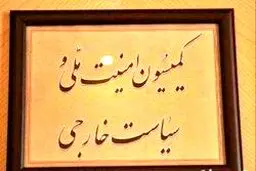 کمیسیون امنیت ملی و
سیاست خارجی